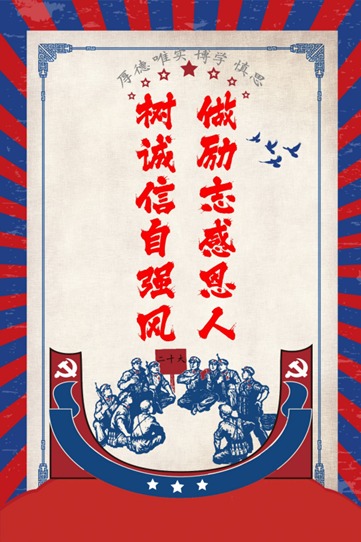 厚德 唯实 博学 慎思
做励志感恩人
树诚信自强风
二十大